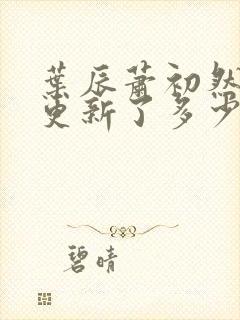 葉辰蕭初然
更新了多少
碧晴